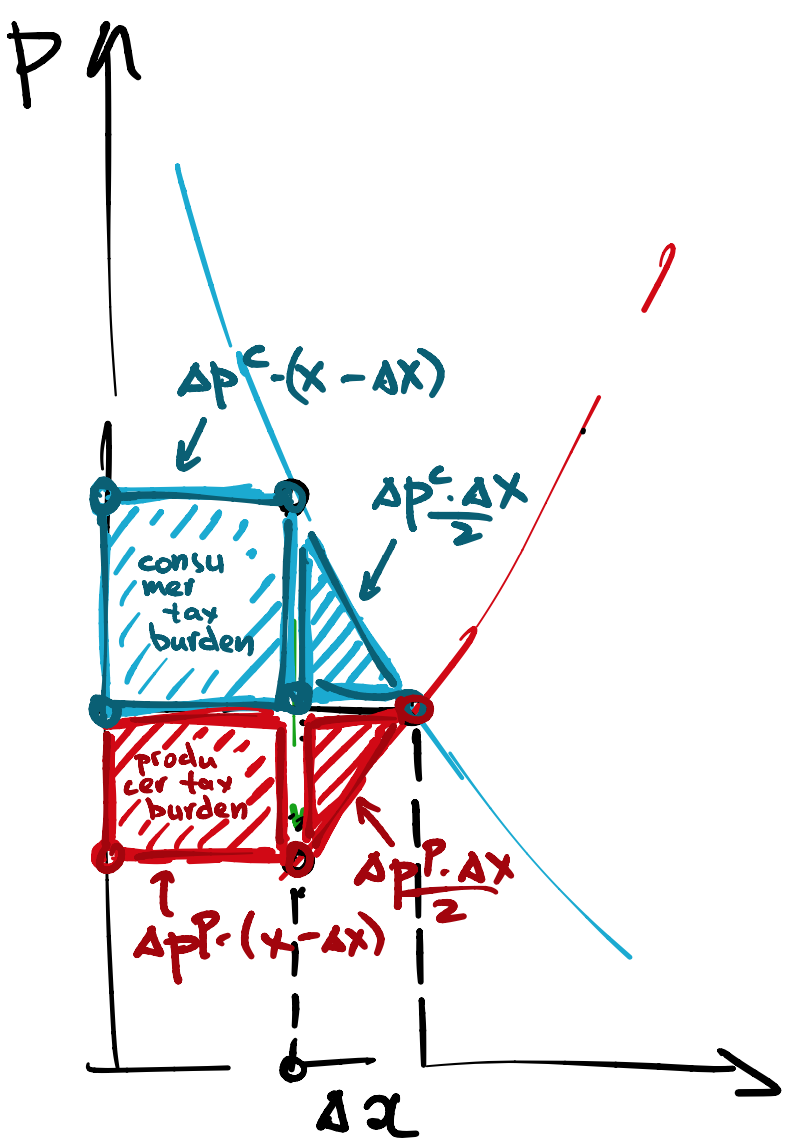 P
Δp^c·(x − Δx)
Δp^c·Δx
2
consu
mer
tax
burden
produ
cer tax
burden
Δp^p·Δx
2
Δp^p·(x − Δx)
Δx